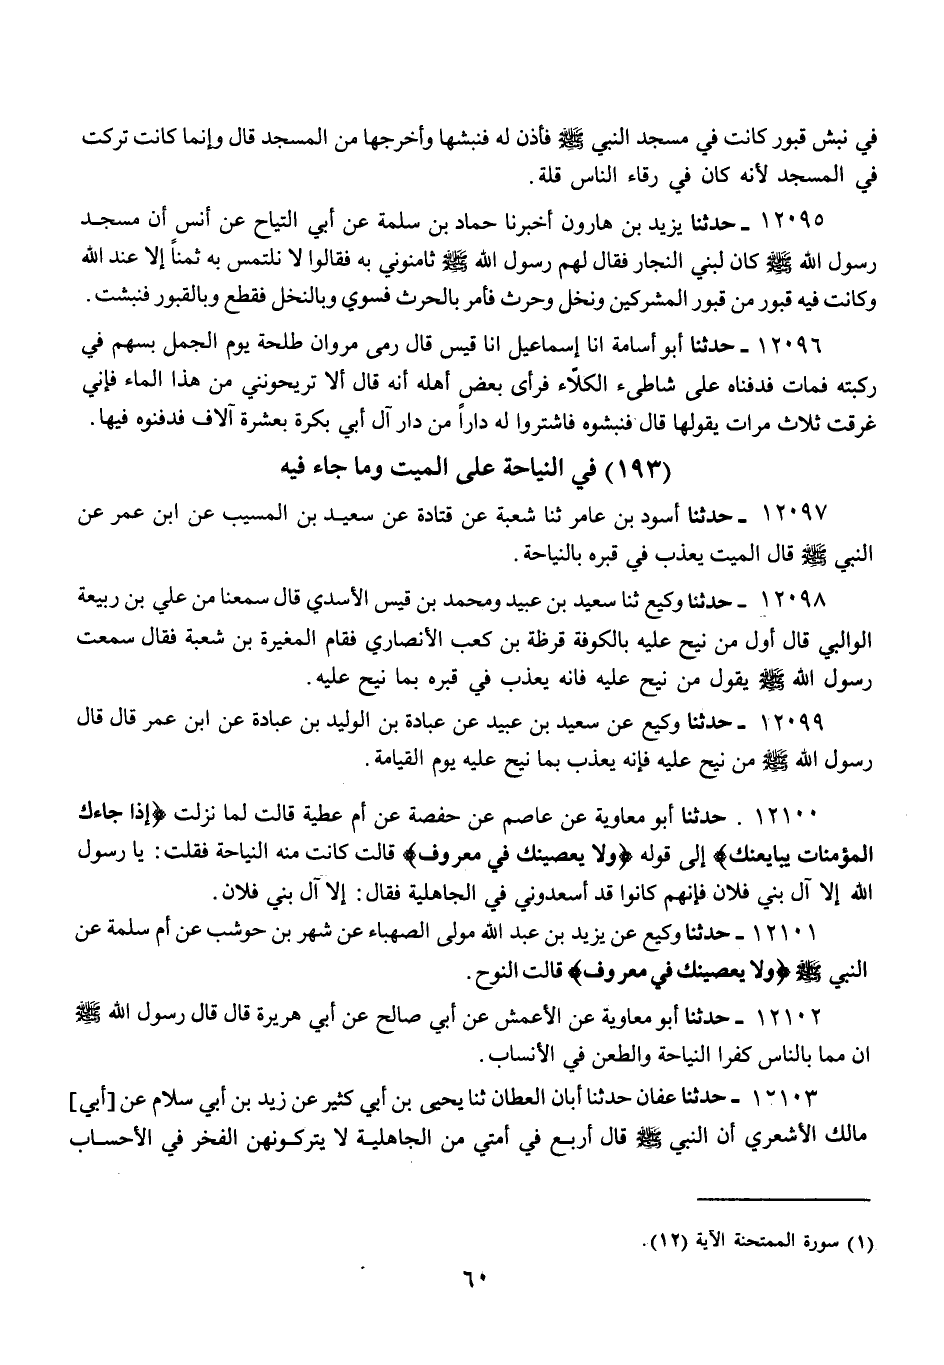 في نبش قبور كانت في مسجد النبي ﷺ فأذن له فنبشها وأخرجها من المسجد قال وإنما كانت تركت
في المسجد لأنه كان في رقاء الناس قلة.
١٢٠٩٥ ـ حدثنا يزيد بن هارون أخبرنا حماد بن سلمة عن أبي التياح عن أنس أن مسجد
رسول الله ﷺ كان لبني النجار فقال لهم رسول الله ﷺ ثامنوني به فقالوا لا نلتمس به ثمناً إلا عند الله
وكانت فيه قبور من قبور المشركين ونخل وحرث فأمر بالحرث فسوي وبالنخل فقطع وبالقبور فنبشت.
١٢٠٩٦ ـ حدثنا أبو أسامة انا إسماعيل انا قيس قال رمى مروان طلحة يوم الجمل بسهم في
ركبته فمات فدفناه على شاطىء الكلّاء فرأى بعض أهله أنه قال ألا تريحونني من هذا الماء فإني
غرقت ثلاث مرات يقولها قال فنبشوه فاشتروا له داراً من دار آل أبي بكرة بعشرة آلاف فدفنوه فيها.
(١٩٣) في النياحة على الميت وما جاء فيه
١٢٠٩٧ ـ حدثنا أسود بن عامر ثنا شعبة عن قتادة عن سعيد بن المسيب عن ابن عمر عن
النبي ﷺ قال الميت يعذب في قبره بالنياحة.
١٢٠٩٨ ـ حدثنا وكيع ثنا سعيد بن عبيد ومحمد بن قيس الأسدي قال سمعنا من علي بن ربيعة
الوالبي قال أول من نيح عليه بالكوفة قرظة بن كعب الأنصاري فقام المغيرة بن شعبة فقال سمعت
رسول الله ﷺ يقول من نيح عليه فانه يعذب في قبره بما نيح عليه.
١٢٠٩٩ ـ حدثنا وكيع عن سعيد بن عبيد عن عبادة بن الوليد بن عبادة عن ابن عمر قال قال
رسول الله ﷺ من نيح عليه فإنه يعذب بما نيح عليه يوم القيامة.
١٢١٠٠ . حدثنا أبو معاوية عن عاصم عن حفصة عن أم عطية قالت لما نزلت ﴿إذا جاءك
المؤمنات يبايعنك﴾ إلى قوله ﴿ولا يعصينك في معروف﴾ قالت كانت منه النياحة فقلت: يا رسول
الله إلا آل بني فلان فإنهم كانوا قد أسعدوني في الجاهلية فقال: إلا آل بني فلان.
١٢١٠١ ـ حدثنا وكيع عن يزيد بن عبد الله مولى الصهباء عن شهر بن حوشب عن أم سلمة عن
النبي ﷺ ﴿ولا يعصينك في معروف﴾ قالت النوح.
١٢١٠٢ ـ حدثنا أبو معاوية عن الأعمش عن أبي صالح عن أبي هريرة قال قال رسول الله ﷺ
ان مما بالناس كفرا النياحة والطعن في الأنساب.
١٢١٠٣ ـ حدثنا عفان حدثنا أبان العطان ثنا يحيى بن أبي كثير عن زيد بن أبي سلام عن [أبي]
مالك الأشعري أن النبي ﷺ قال أربع في أمتي من الجاهلية لا يتركونهن الفخر في الأحساب
(١) سورة الممتحنة الآية (١٢).
٦٠